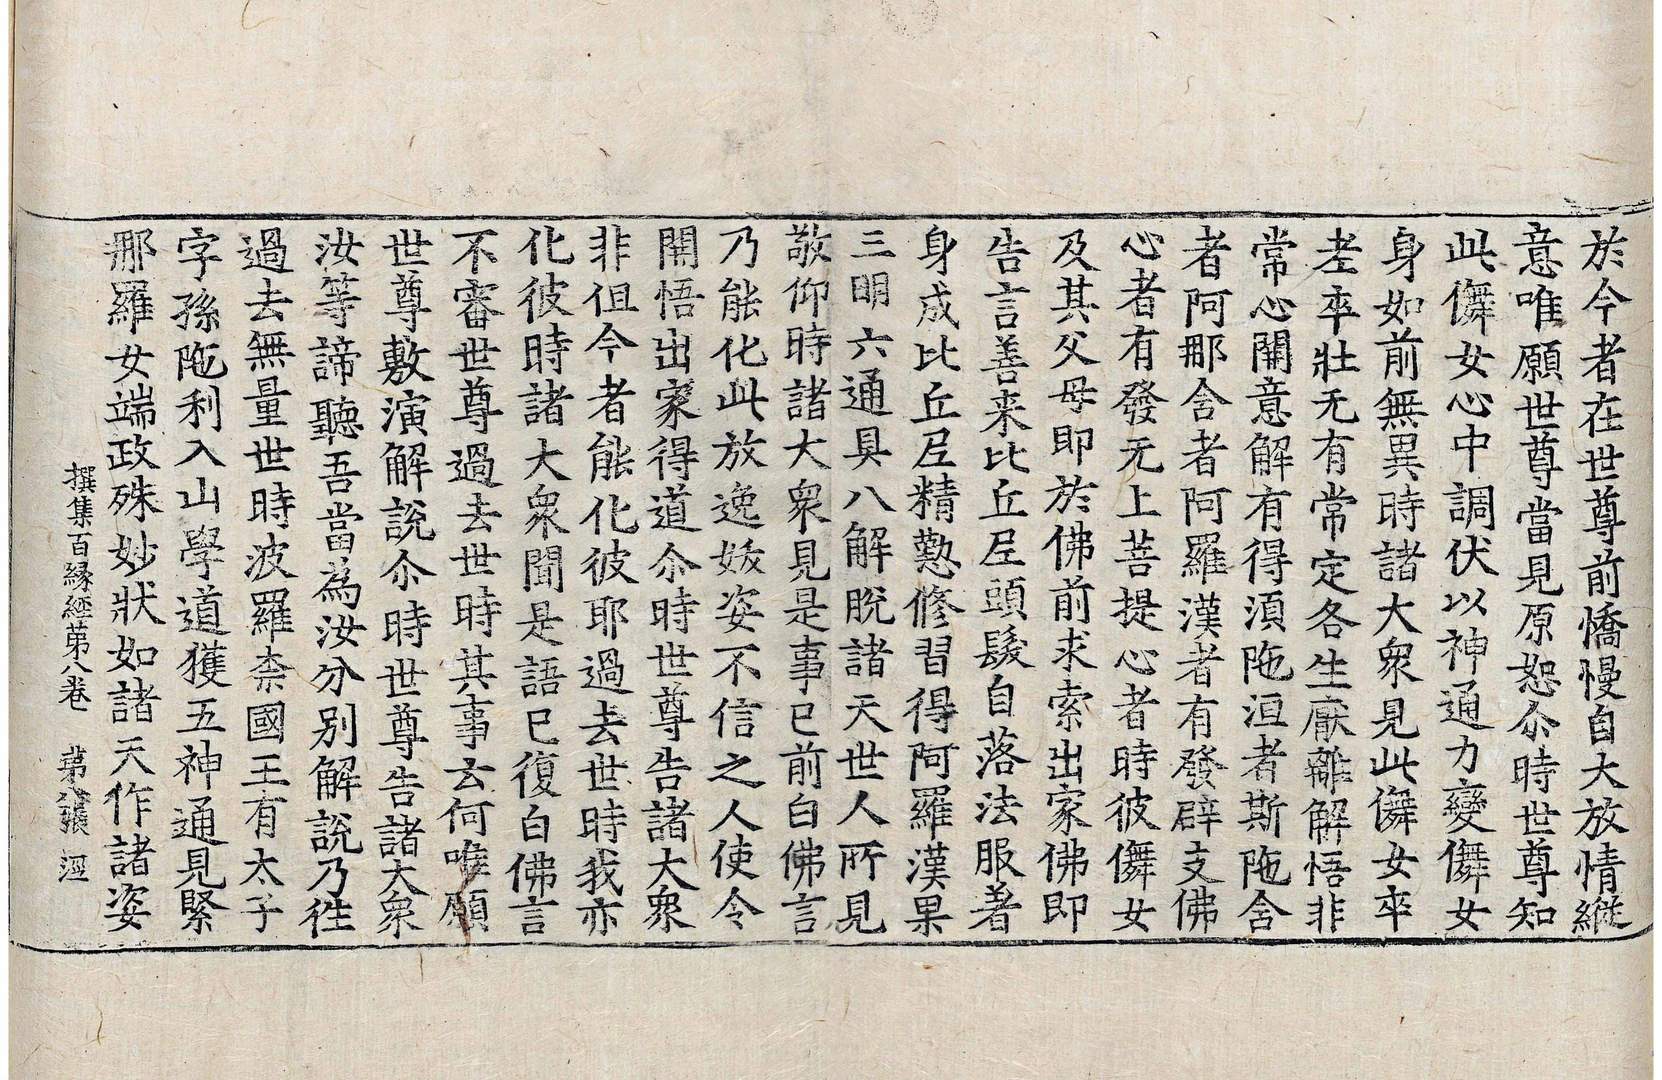 於今者在世尊前憍慢自大放情縱
意唯願世尊當見原恕尒時世尊知
此儛女心中調伏以神通力變儛女
身如前無異時諸大衆見此儛女卒
老卒壯无有常定各生厭離解悟非
常心開意解有得湏陁洹者斯陁含
者阿那含者阿羅漢者有發辟支佛
心者有發无上菩提心者時彼儛女
及其父母即於佛前求索出家佛即
告言善来比丘尼頭髮自落法服著
身成比丘尼精懃修習得阿羅漢果
三明六通具八解脫諸天世人所見
敬仰時諸大衆見是事已前白佛言
乃能化此放逸姟姿不信之人使令
開悟出家得道尒時世尊告諸大衆
非但今者能化彼耶過去世時我亦
化彼時諸大衆聞是語已復白佛言
不審世尊過去世時其事云何唯願
世尊敷演解說尒時世尊告諸大衆
汝等諦聽吾當為汝分別解說乃徃
過去無量世時波羅柰國王有太子
字孫陁利入山學道獲五神通見緊
那羅女端政殊妙狀如諸天作諸姿
撰集百緣經第八卷 第八張 涇